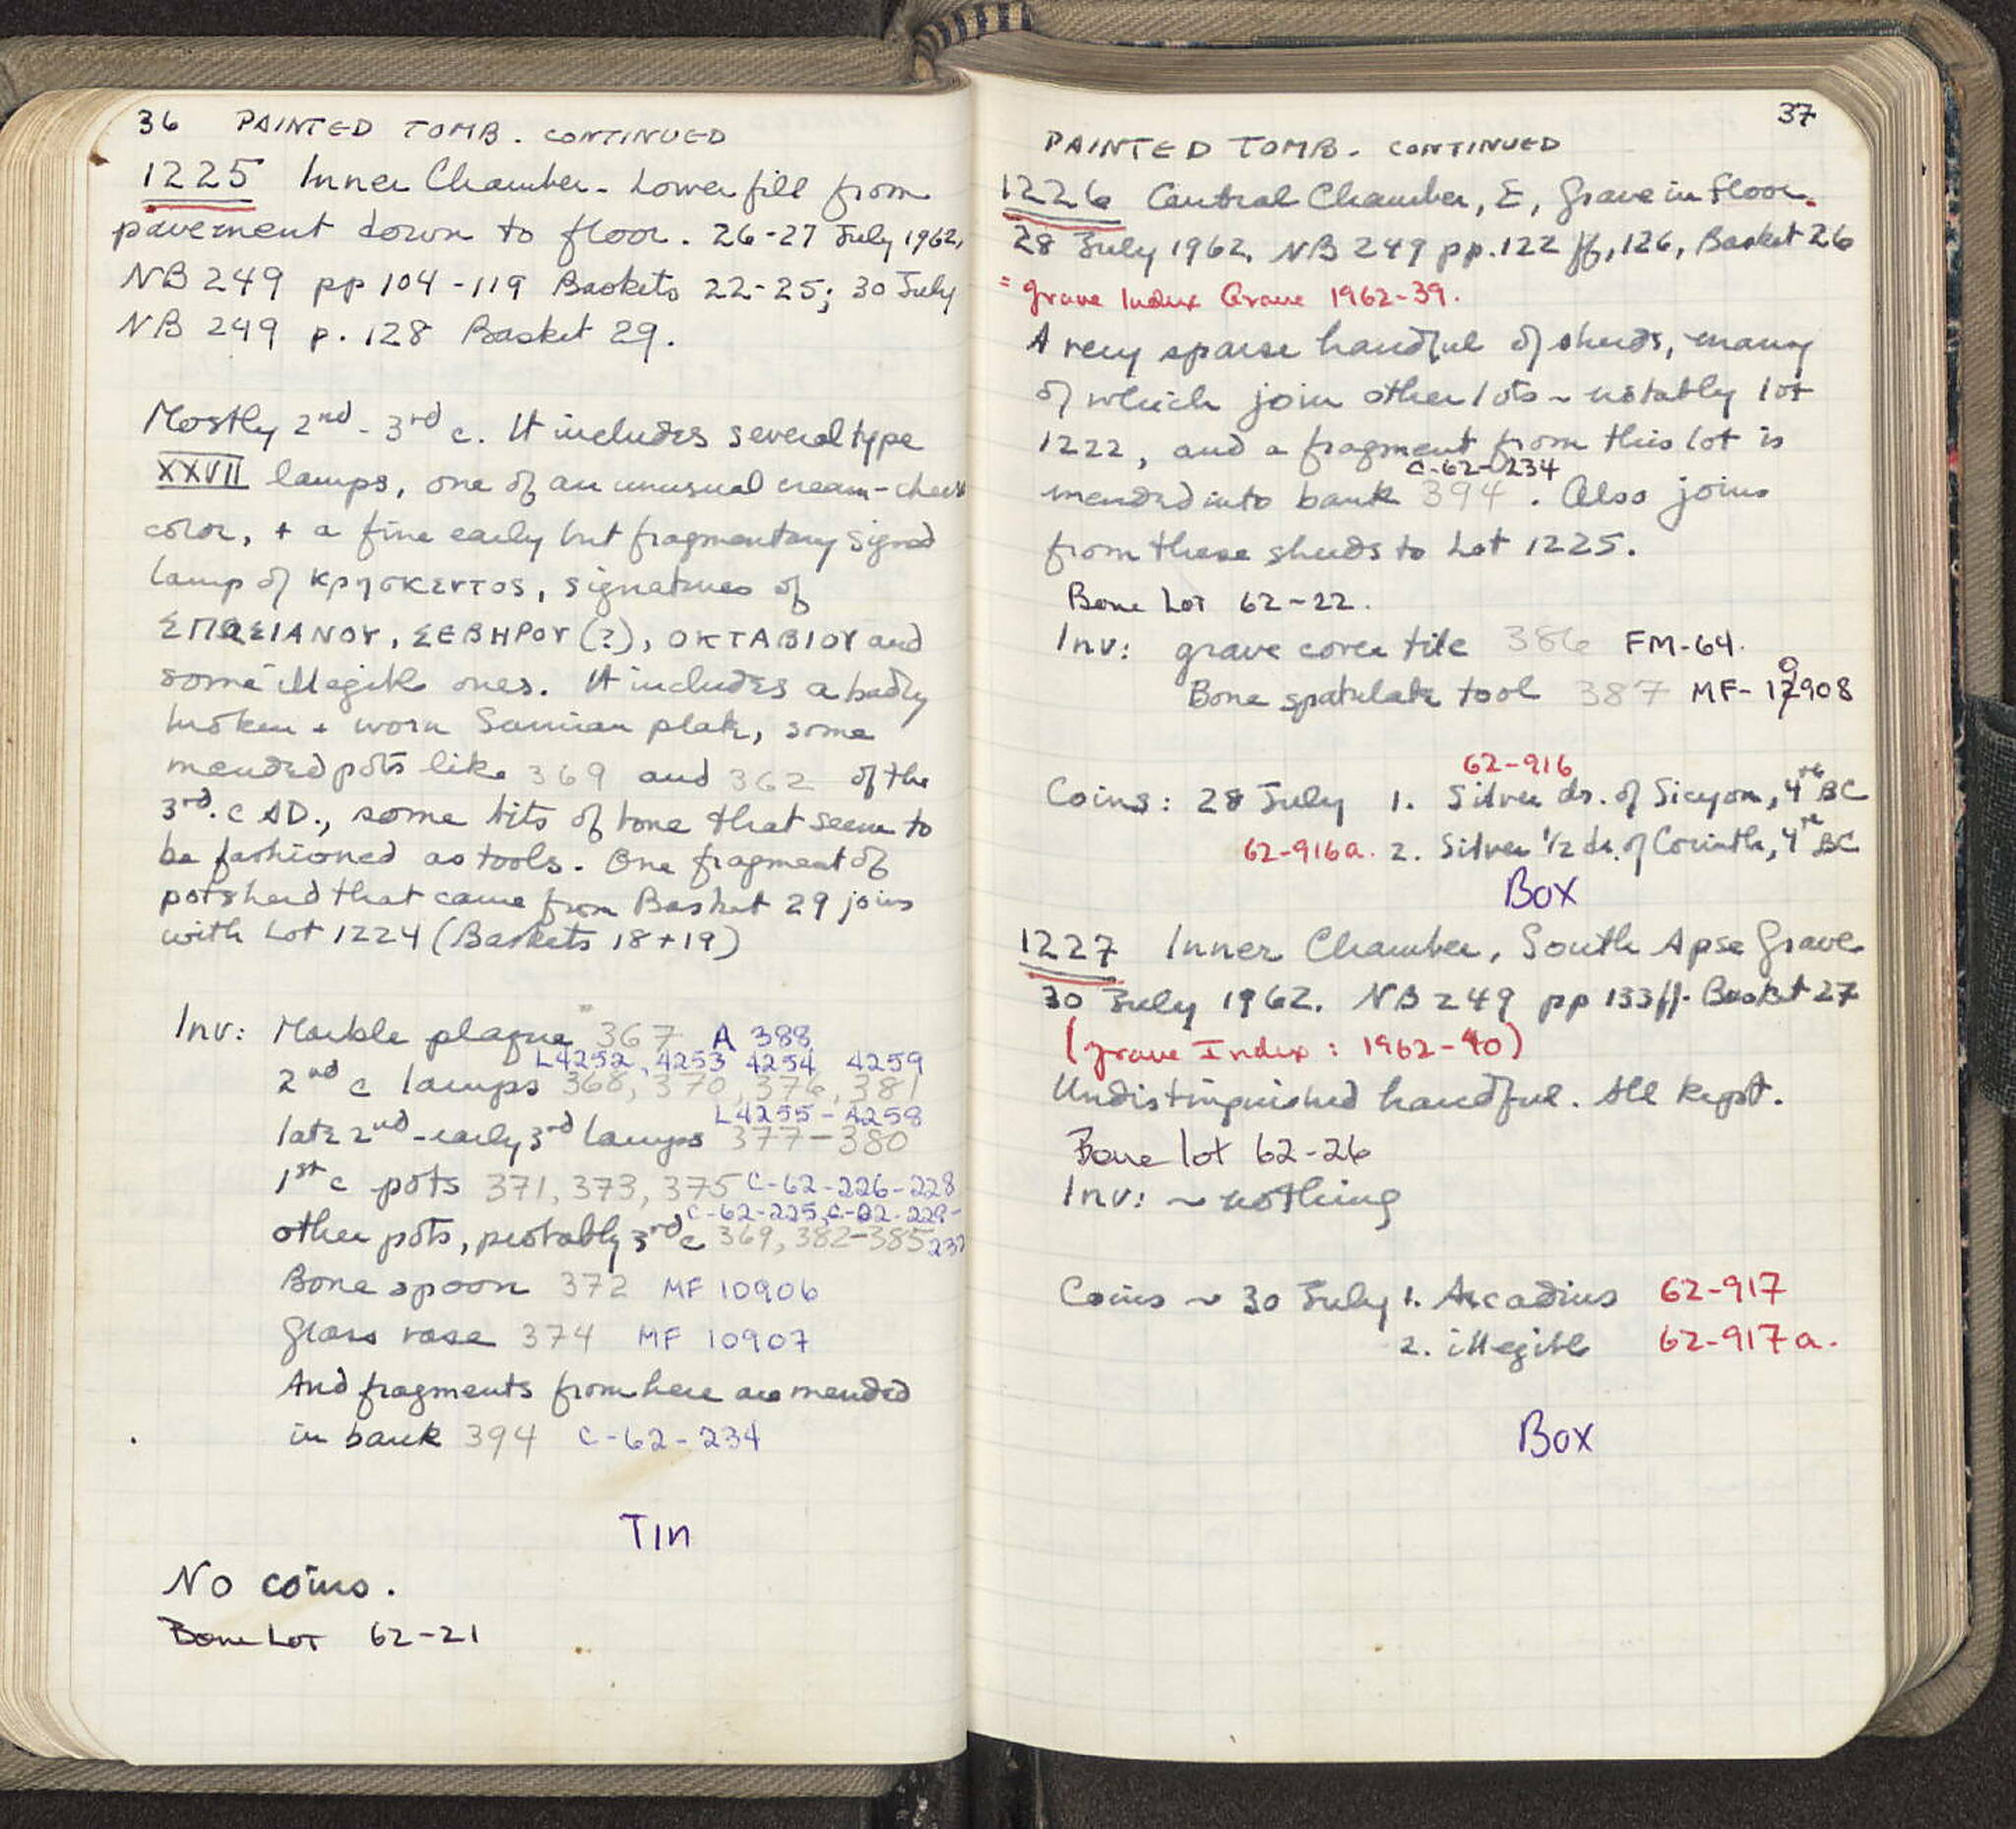 36 PAINTED TOMB. CONTINUED
1225 Inner Chamber - Lower fill from
pavement down to floor. 26-27 July 1962,
NB 249 pp 104-119 Baskets 22-25; 30 July
NB 249 p. 128 Basket 29.
Mostly 2nd - 3rd c. It includes several type
XXVII lamps, one of an unusual cream-cheese
color, + a fine early but fragmentary signed
lamp of Κρησκεντος, signatures of
ΣΠΩΣΙΑΝΟΥ, ΣΕΒΗΡΟΥ (?), ΟΚΤΑΒΙΟΥ and
some illegible ones. It includes a badly
broken + worn Samian plate, some
mended pots like 369 and 362 of the
3rd. c AD., some bits of bone that seem to
be fashioned as tools. One fragment of
potsherd that came from Basket 29 joins
with Lot 1224 (Baskets 18+19)
Inv: Marble plaque 367 A 388
L4252, 4253 4254 4259
2nd c lamps 368, 370, 376, 381
L4255-4258
late 2nd-early 3rd lamps 377-380
1st c pots 371, 373, 375 C-62-226-228
C-62-225, C-62-229-
other pots, probably 3rd c 369, 382-385 232
Bone spoon 372 MF 10906
Glass vase 374 MF 10907
And fragments from here are mended
in bank 394 C-62-234
TIN
No coins.
Bone Lot 62-21
37
PAINTED TOMB. CONTINUED
1226 Central Chamber, E, Grave in floor.
28 July 1962. NB 249 pp. 122 ff, 126, Basket 26
= grave Index Grave 1962-39.
A very sparse handful of sherds, many
of which join other lots ~ notably lot
1222, and a fragment from this lot is
C-62-234
mended into bank 394. Also joins
from these sherds to Lot 1225.
Bone Lot 62-22.
Inv: grave cover tile 386 FM-64.
0
Bone spatulate tool 387 MF-12908
62-916
Coins: 28 July 1. Silver dr. of Sicyon, 4th BC
62-916a. 2. Silver 1/2 dr. of Corinth, 4th BC
Box
1227 Inner Chamber, South Apse Grave
30 July 1962. NB 249 pp 133ff. Basket 27
(grave Index: 1962-40)
Undistinguished handful. All kept.
Bone lot 62-26
Inv: ~ nothing
Coins ~ 30 July 1. Arcadius 62-917
2. illegible 62-917a.
Box